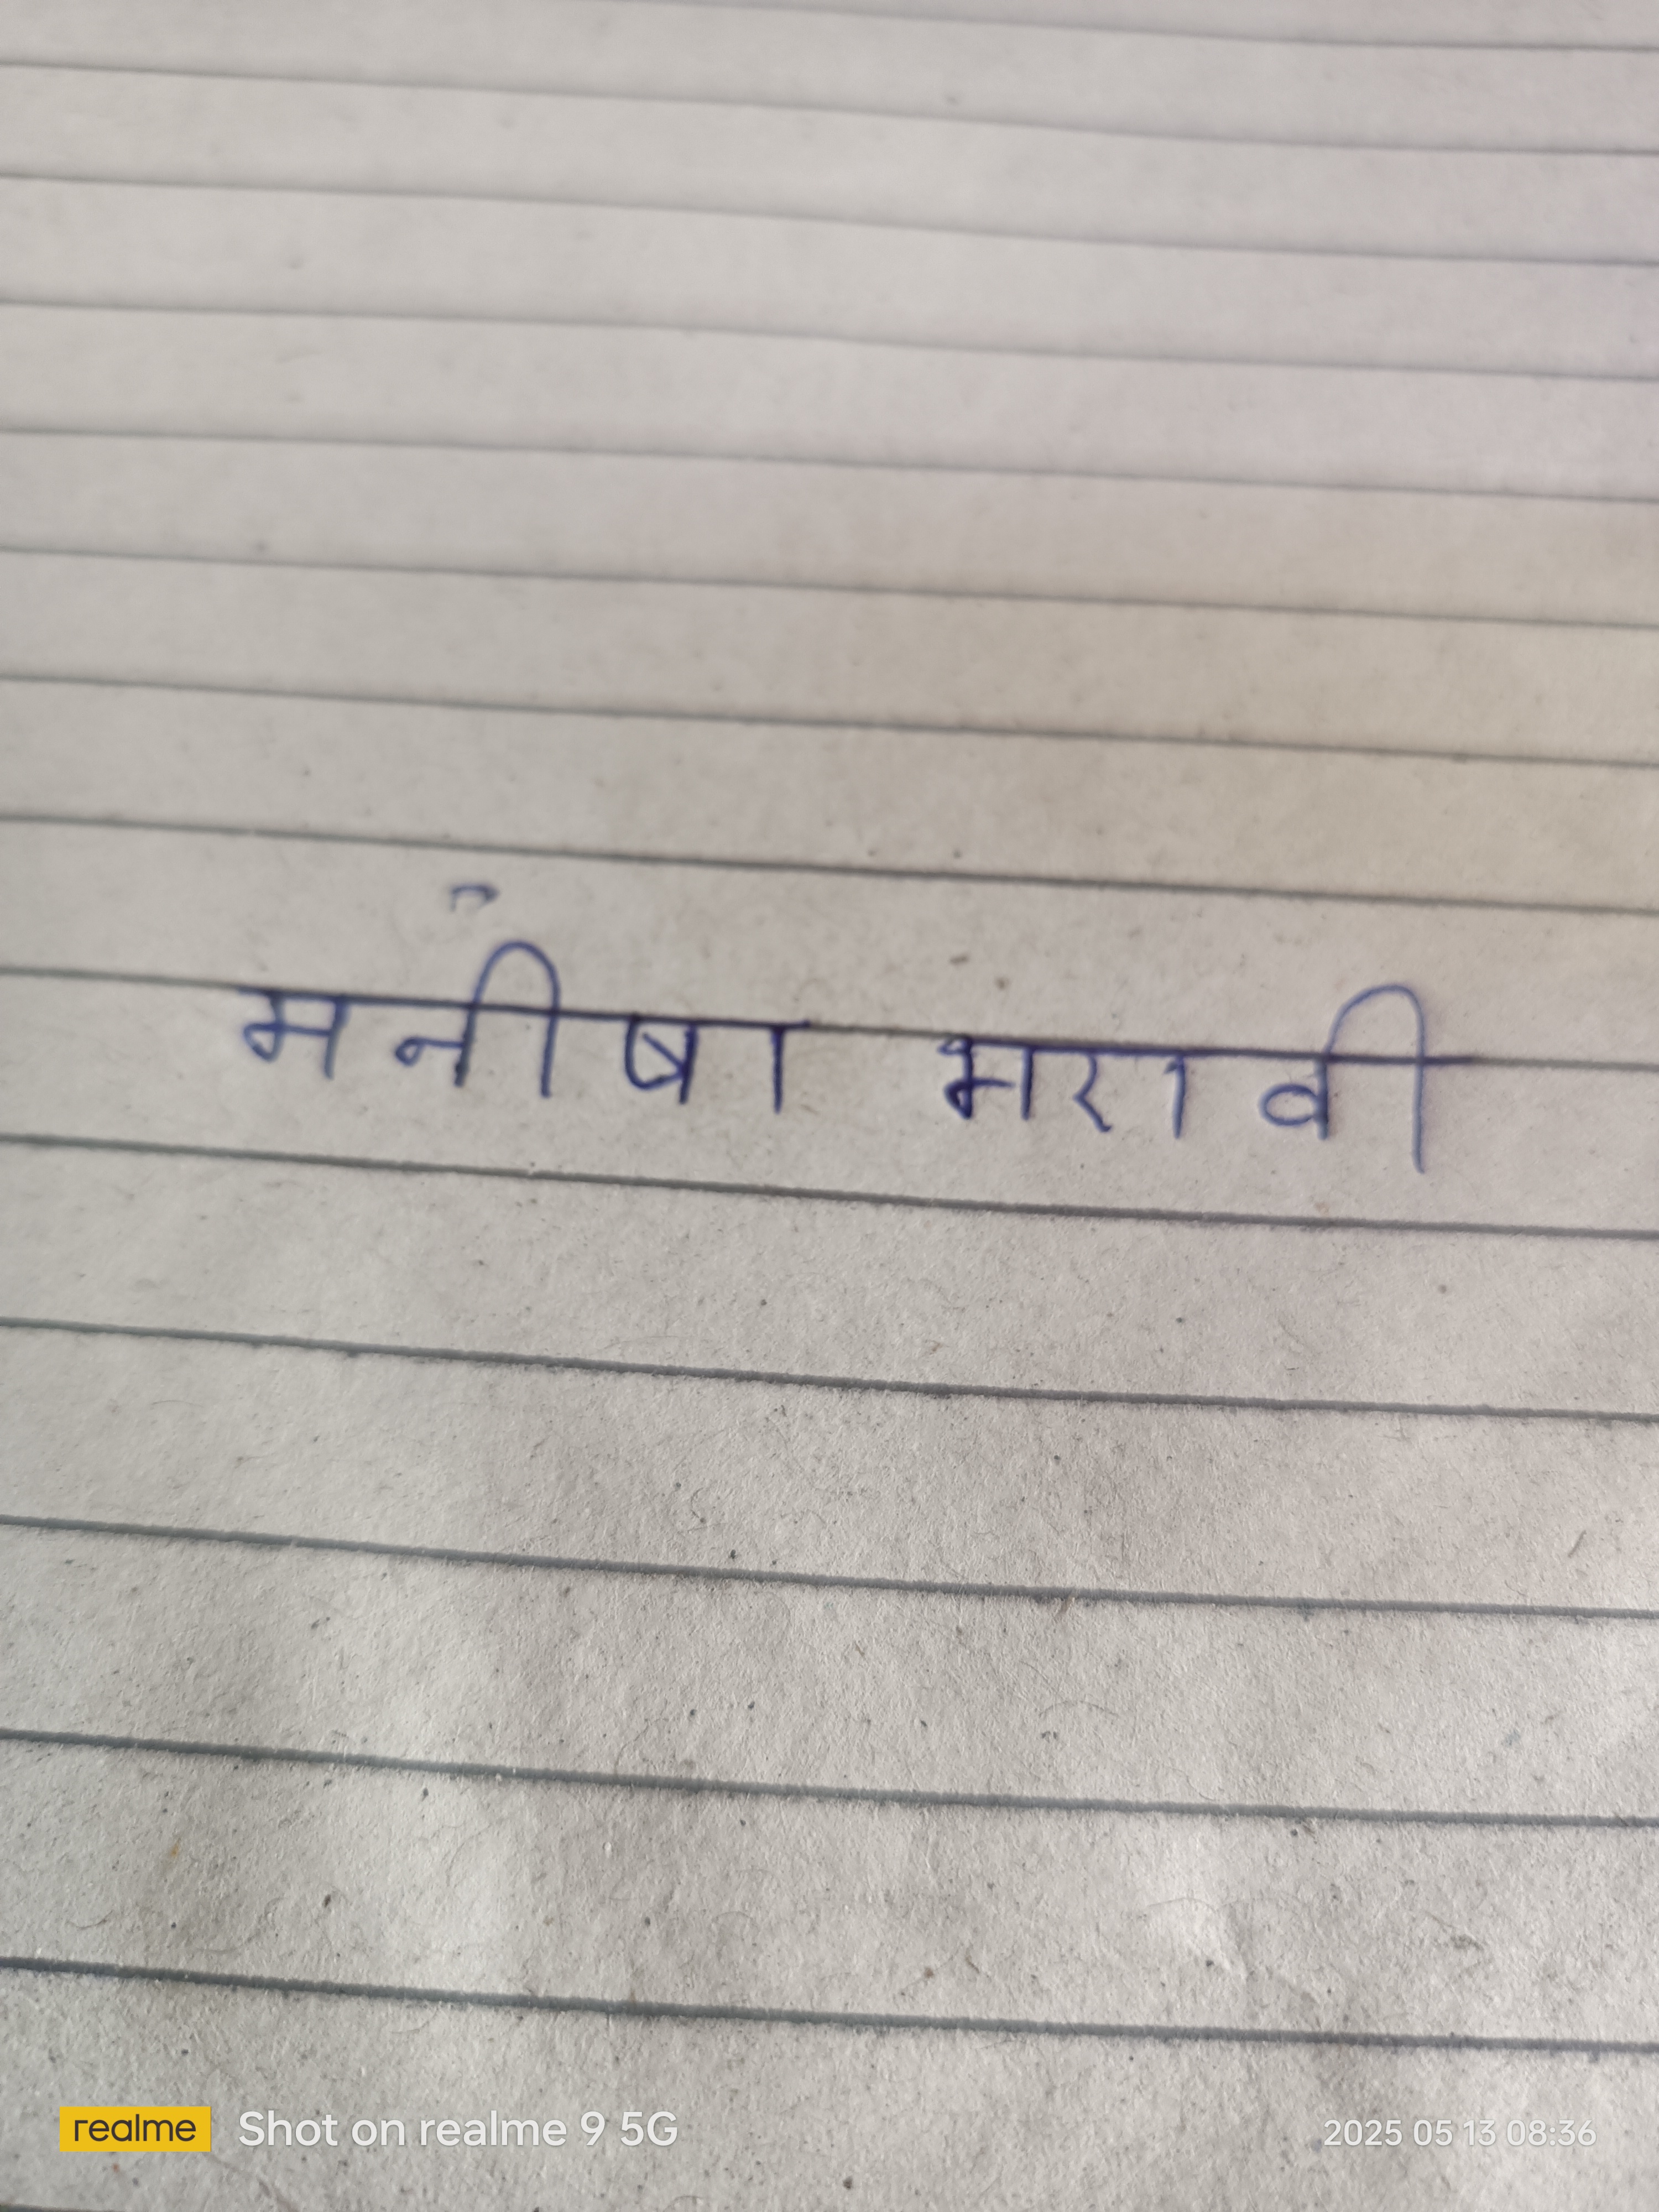 मनीषा मरावी
realme Shot on realme 9 5G
2025 05 13 08:36